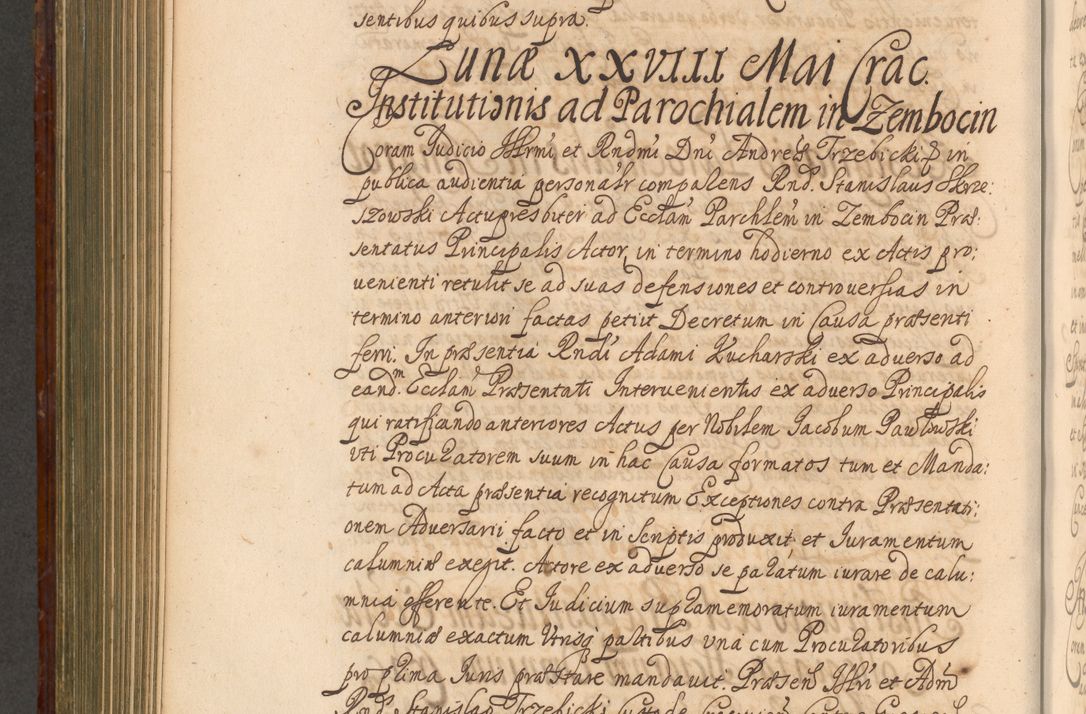 sentibus quibus supra.
Lunæ XXVIII Mai Crac.
Institutionis ad Parochialem in Zembocin
Coram Judicio Illrmi et Rndmi Dni Andreæ Trzebicki in
publica audientia personalr compalens Rnd. Stanislaus Skrze:
szowski Actupresbiter ad Ecclam Parchlem in Zembocin Præ:
sentatus Principalis Actor, in termino hodierno ex Actis pro:
uenienti retulit se ad suas defensiones et controuersias in
termino anteriori factas petiit Decretum in Causa præsenti
ferri. In præsentia Rndi Adami Kucharski ex aduerso ad
eandm Ecclam Præsentati Interuenientis ex aduerso Principalis
qui ratificando anteriores Actus per Nobilem Jacobum Pawłowski
uti Procuratorem suum in hac Causa formatos tum et Manda:
tum ad Acta præsentia recognitum Exceptiones contra Præsentati:
onem Aduersarij facto et in Scriptis produxit, et Juramentum
calumniæ exegit. Actore ex aduerso se paratum iurare de calu:
mnia offerente. Et Judicium supramemoratum iuramentum
calumniæ exactum Utrisq partibus una cum Procuratoribus
pro prima Juris præstare mandauit. Præsen Illri et Adm
Rnd. Stanislao Trzebicki Custode